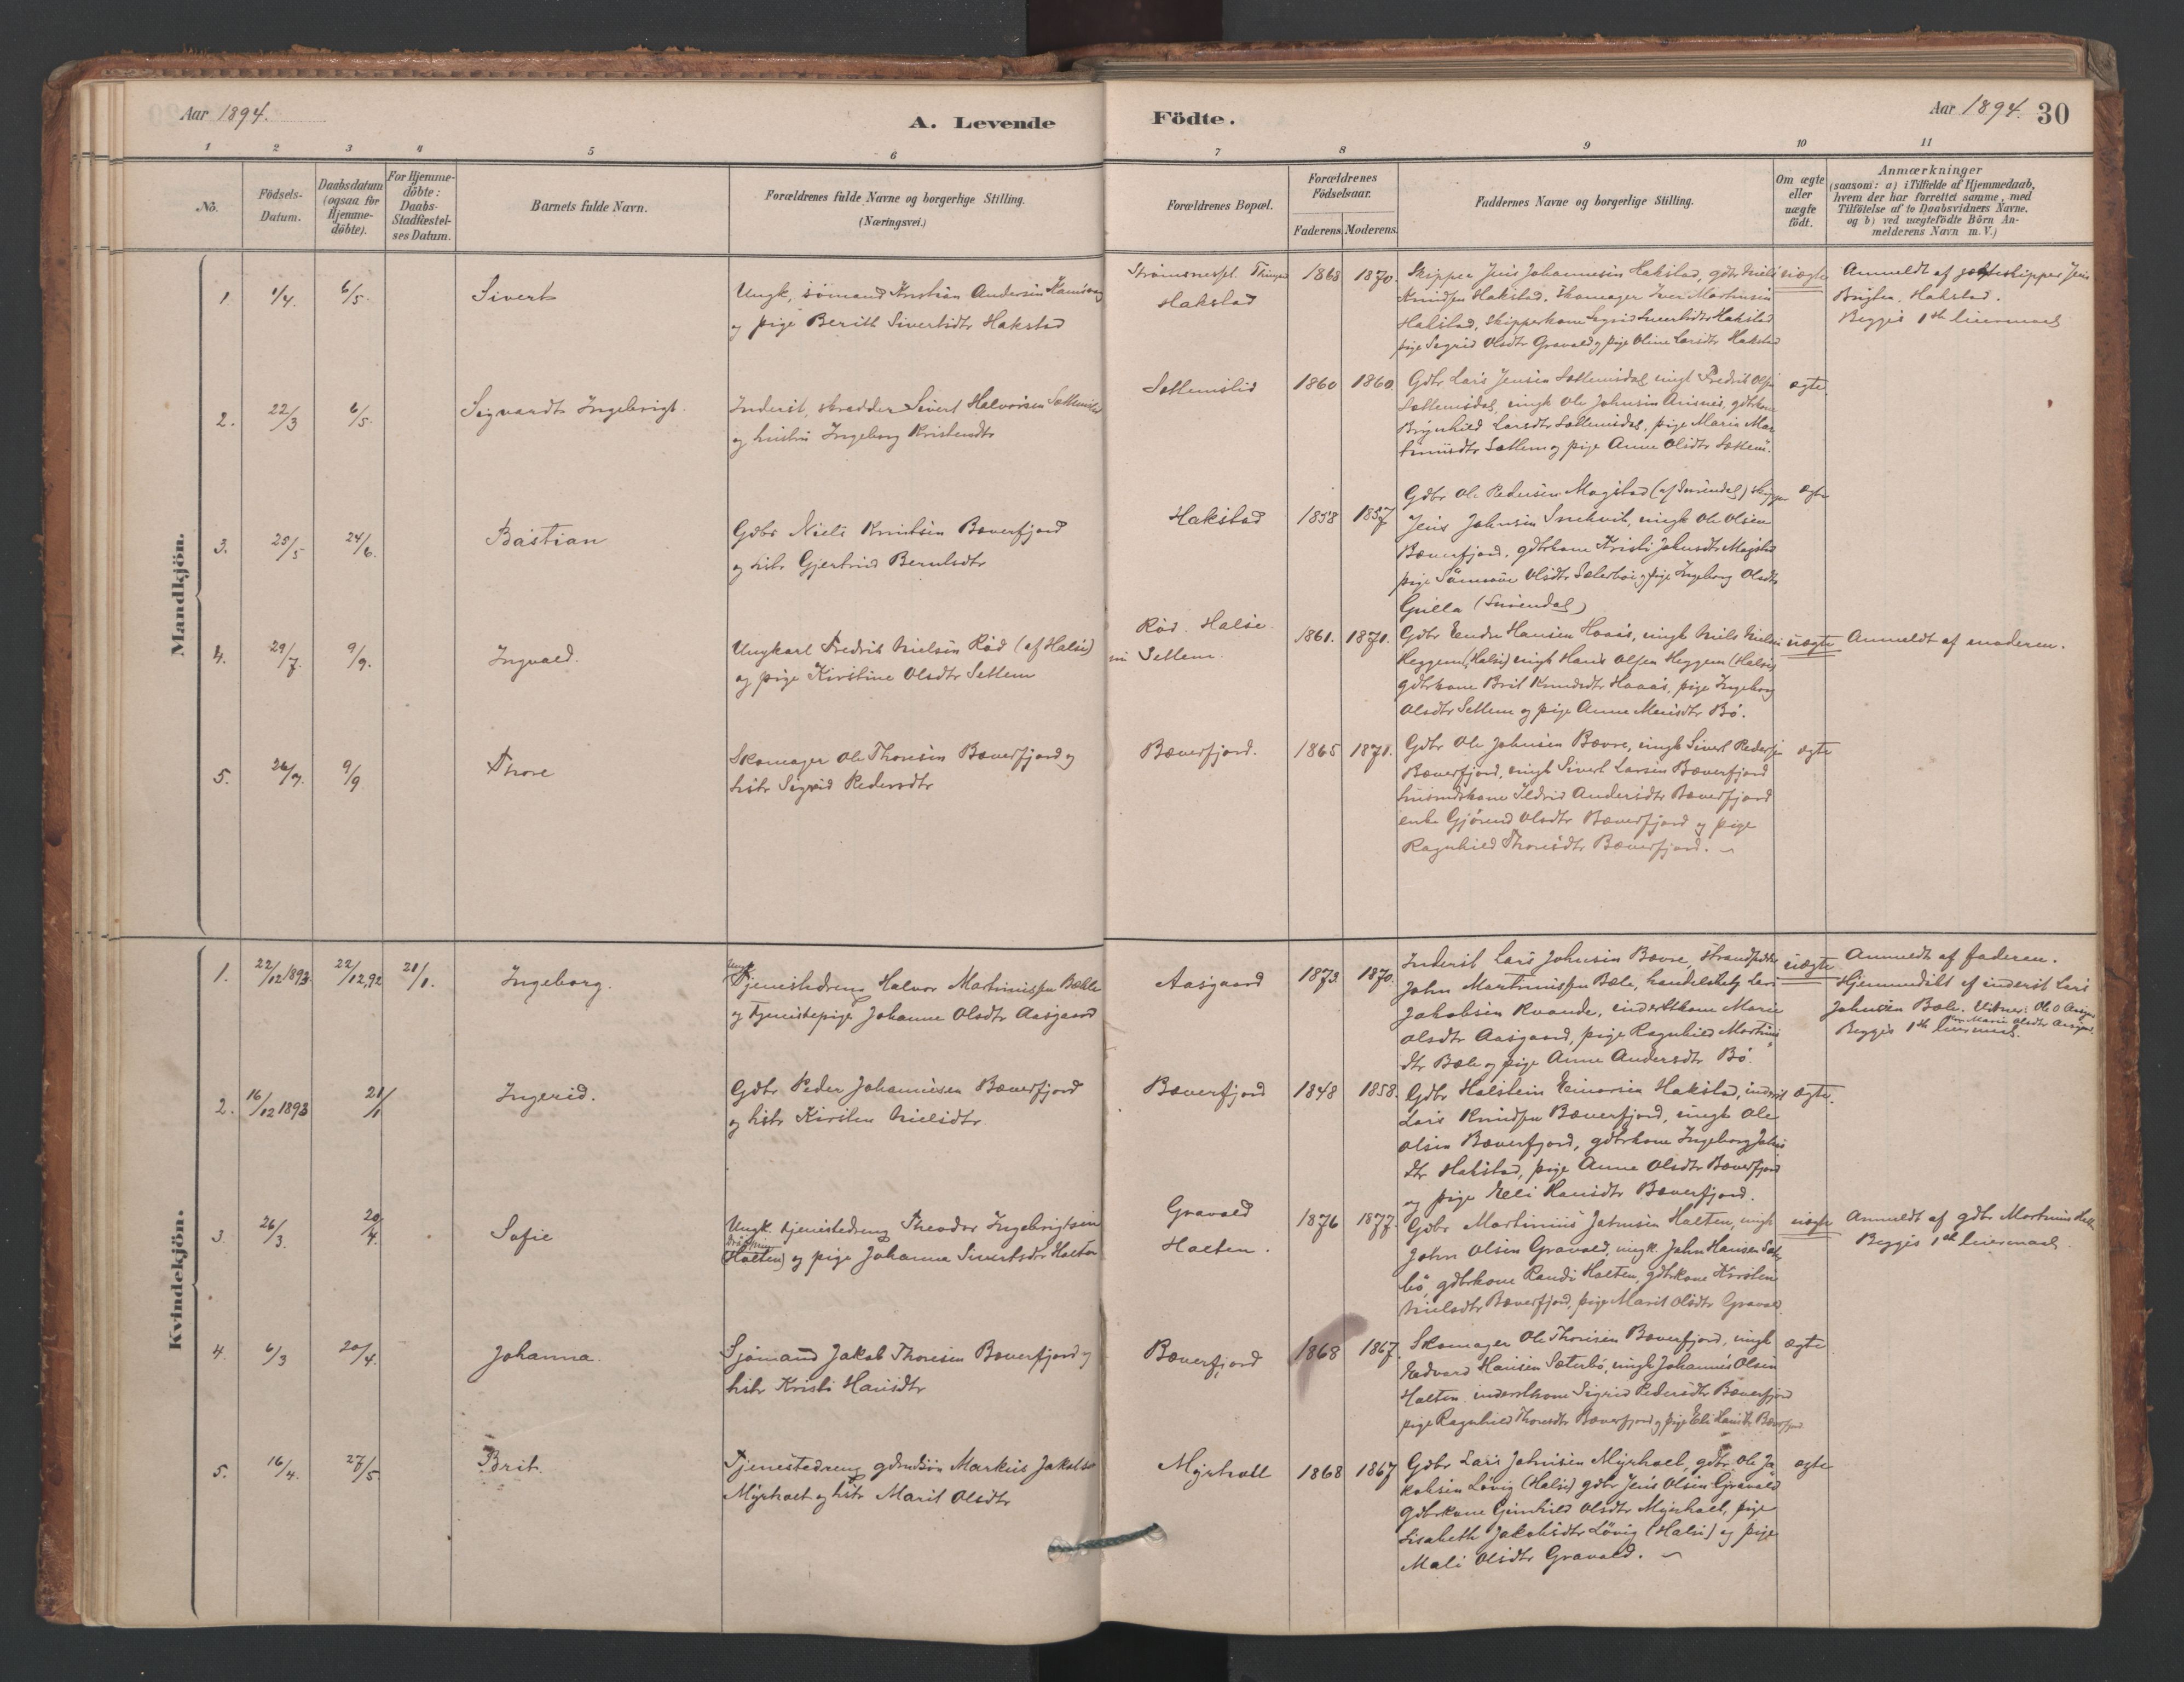 Aar 1894.
A. Levende
Födte.
Aar 1894. 30
1 2 3 4 5 6 7 8 9 10 11
No.
Födsels-
Datum.
Daabsdatum
(ogsaa for
Hjemme-
döbte).
For Hjemme-
döbte:
Daabs-
Stadfæstel-
ses Datum.
Barnets fulde Navn.
Forældrenes fulde Navne og borgerlige Stilling.
(Næringsvei.)
Forældrenes Bopæl.
Forældrenes
Födselsaar.
Faderens. Moderens.
Faddernes Navne og borgerlige Stilling.
Om ægte
eller
uægte
födt.
Anmærkninger
(saasom: a) i Tilfælde af Hjemmedaab,
hvem der har forrettet samme, med
Tilföielse af to Daabsvidners Navne,
og b) ved uægtefödte Börn An-
melderens Navn m. V.)
Mandkjön.
1. 1/4. 6/5. Sivert
Ungk. sömand Kristian Andersen
og pige Beritt Sivertsdtr Hakstad
Hakstad
1868 1870.
Skipper Jens Johannesen Hakstad, gdbr Niels
Knudsen Hakstad, skomager Iver Martinsen
Hakstad, Skipperkone Sigrid Sivertsdtr Hakstad
pige Sigrid Olsdtr Gravald og pige Oline Larsdtr Hakstad
uægte
Anmeldt af jægteskipper Jens
Hakstad.
Begges 1ste leiermaal
2. 22/3 6/5. Sigvardt Ingebrigt.
Inderst, skrædder Sivert Halvorsen Settemslid
og hustru Ingeborg Kristensdtr
Settemslid
1860 1860
Gdbr Lars Jensen Settemsdal, ungk Fredrik Olsen
Settemsdal, ungk Ole Johnsen Aasnes, gdbrkone
Brynhild Larsdtr Settemsdal, pige Marie Mar
tinusdtr Settem og pige Anne Olsdtr Settem.
ægte.
3. 25/5 24/6. Bastian
Gdbr Niels Knudsen Bæverfjord
og hstr Gjertrud Berntsdtr
Hakstad
1858 1857
Gdbr Ole Pedersen Magstad (af Surendal) skipper
Jens Johnsen Snekvik, ungk Ole Olsen
Bæverfjord, gdbrkone Kristi Johnsdtr Magstad
pige Olsdtr Sæterbö og pige Ingeborg Olsdtr
Gulla (Surendal)
ægte
4. 29/7. 9/9. Ingvald.
Ungkarl Fredrik Nielsen Röd (af Halse)
og pige Kirstine Olsdtr Settem
Röd. Halse
Settem.
1861. 1871.
Gdbr Endre Hansen Haaas, ungk Nils Nielsen
Heggem (Halse) ungk Hans Olsen Heggem (Halse)
gdbrkone Brit Knudsdtr Haaas, pige Ingeborg
Olsdtr Settem og pige Anne Monsdtr Bö.
uægte
Anmeldt af moderen.
5. 26/7. 9/9 Thore
Skomager Ole Thoresen Bæverfjord og
hstr Sigrid Pedersdtr
Bæverfjord.
1865 1871.
Gdbr Ole Johnsen Bævre, ungk Sivert Pedersen
Bæverfjord, ungk Sivert Larsen Bæverfjord
husmdskone Ildrid Andersdtr Bæverfjord
enke Gjörend Olsdtr Bæverfjord og pige
Ragnhild Thoresdtr Bæverfjord.
ægte
Kvindekjön.
1. 22/12 1893. 22/12,92 21/1. Ingeborg.
Ungk
Tjenestedreng Halvor Martinussen Bæhle
og Tjenestepige Johanne Olsdtr Aasgaard
Aasgaard
1873. 1870.
Inderst Lars Johnsen Bævre, strandsidder
John Martinussen Bæle, handelsbetj Lars
Jakobsen Kvande, inderstkone Marie
Olsdtr Aasgaard, pige Ragnhild Martinus
dtr Bæle og pige Anne Andersdtr Bö.
uægte
Anmeldt af faderen.
Hjemmedöbt af inderst Lars
Johnsen Bæle. Vidner: Ole O Aasgaard
Marie Olsdtr Aasgaard.
Begges 1ste leiermaal.
2. 16/12 1893 21/1 Ingerid.
Gdbr Peder Johannesen Bæverfjord
og hstr Kirsten Nielsdtr
Bæverfjord
1848 1858.
Gdbr Halstein Einarsen Hakstad, inderst
Lars Knudsen Bæverfjord, ungk Ole
Olsen Bæverfjord, gdbrkone Ingeborg Johns
dtr Hakstad, pige Anne Olsdtr Bæverfjord
og pige Eli Hansdtr Bæverfjord.
ægte.
3. 26/3. 20/4. Sofie
Ungk tjenestedreng Theodor Ingebrigtsen
Halten) og pige Johanna Sivertsdtr Halten
Gravald
Halten.
1876 1877.
Gdbr Martinus Johnsen Halten, ungk
John Olsen Gravald, ungk. John Hansen Sæter
bö, gdbrkone Randi Halten, gdbrkone Kirsten
Nielsdtr Bæverfjord, pige Marit Olsdtr Gravald.
uægte
Anmeldt af gdbr Martinus Halten
Begges 1ste leiermaal
4. 6/3 20/4. Johanna.
Sjömand Jakob Thoresen Bæverfjord og
hstr Kristi Hansdtr
Bæverfjord
1868 1867.
Skomager Ole Thoresen Bæverfjord, ungk
Edvard Hansen Sæterbö, ungk Johannes Olsen
Halten, inderstkone Sigrid Pedersdtr Bæverfjord
pige Ragnhild Thoresdtr Bæverfjord og pige Eli Hansdtr Bæverfjord
ægte
5. 16/4. 27/5 Brit.
Tjenestedreng gdmdsön Markus Jakobs
Myrholt og hstr Marit Olsdtr
Myrholt
1868 1867
Gdbr Lars Johnsen Myrholt, gdbr. Ole Ja
kobsen Lövig (Halse) gdbr Jens Olsen Gravald
Gdbrkone Gunhild Olsdtr Myrholt, pige
Lisabeth Jakobsdtr Lövig (Halse) og pige
Mali Olsdtr Gravald.
ægte